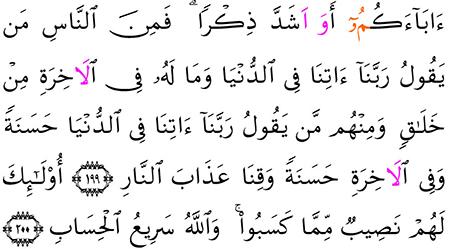 ءَابَآءَكُمُۥٓ أَوَ اَشَدَّ ذِكْرٗاۖ فَمِنَ اَ۬لنَّاسِ مَن
يَقُولُ رَبَّنَآ ءَاتِنَا فِى اِ۬لدُّنْيَا وَمَا لَهُۥ فِى اِ۬لَاخِرَةِ مِنْ
خَلَٰقٖ وَمِنْهُم مَّن يَقُولُ رَبَّنَآ ءَاتِنَا فِى اِ۬لدُّنْيَا حَسَنَةٗ
وَفِى اِ۬لَاخِرَةِ حَسَنَةٗ وَقِنَا عَذَابَ اَ۬لنَّارِ ١٩٩ أُوْلَٰٓئِكَ
لَهُمْ نَصِيبٞ مِّمَّا كَسَبُواْۖ وَاللَّهُ سَرِيعُ اُ۬لْحِسَابِ ٢٠٠